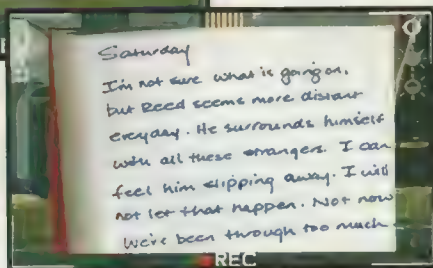 Saturday
I'm not sure what is going on,
but Reed seems more distant
everyday. He surrounds himself
with all these strangers. I can
feel him slipping away. I will
not let that happen. Not now
We've been through too much
REC